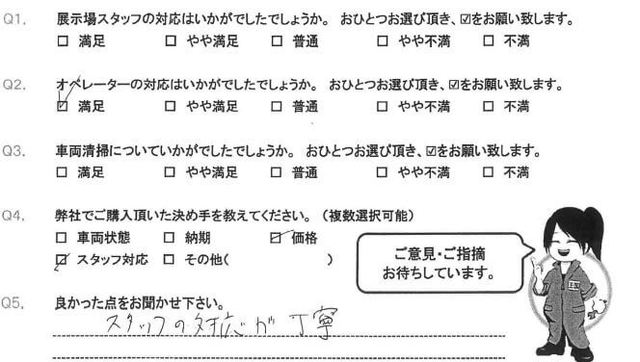 Q1. 展示場スタッフの対応はいかがでしたでしょうか。 おひとつお選び頂き、☑をお願い致します。
□ 満足 □ やや満足 □ 普通 □ やや不満 □ 不満
Q2. オペレーターの対応はいかがでしたでしょうか。 おひとつお選び頂き、☑をお願い致します。
☑ 満足 □ やや満足 □ 普通 □ やや不満 □ 不満
Q3. 車両清掃についていかがでしたでしょうか。 おひとつお選び頂き、☑をお願い致します。
□ 満足 □ やや満足 □ 普通 □ やや不満 □ 不満
Q4. 弊社でご購入頂いた決め手を教えてください。(複数選択可能)
□ 車両状態 □ 納期 ☑ 価格
☑ スタッフ対応 □ その他( )
ご意見・ご指摘
お待ちしています。
Q5. 良かった点をお聞かせ下さい。
スタッフの対応が丁寧